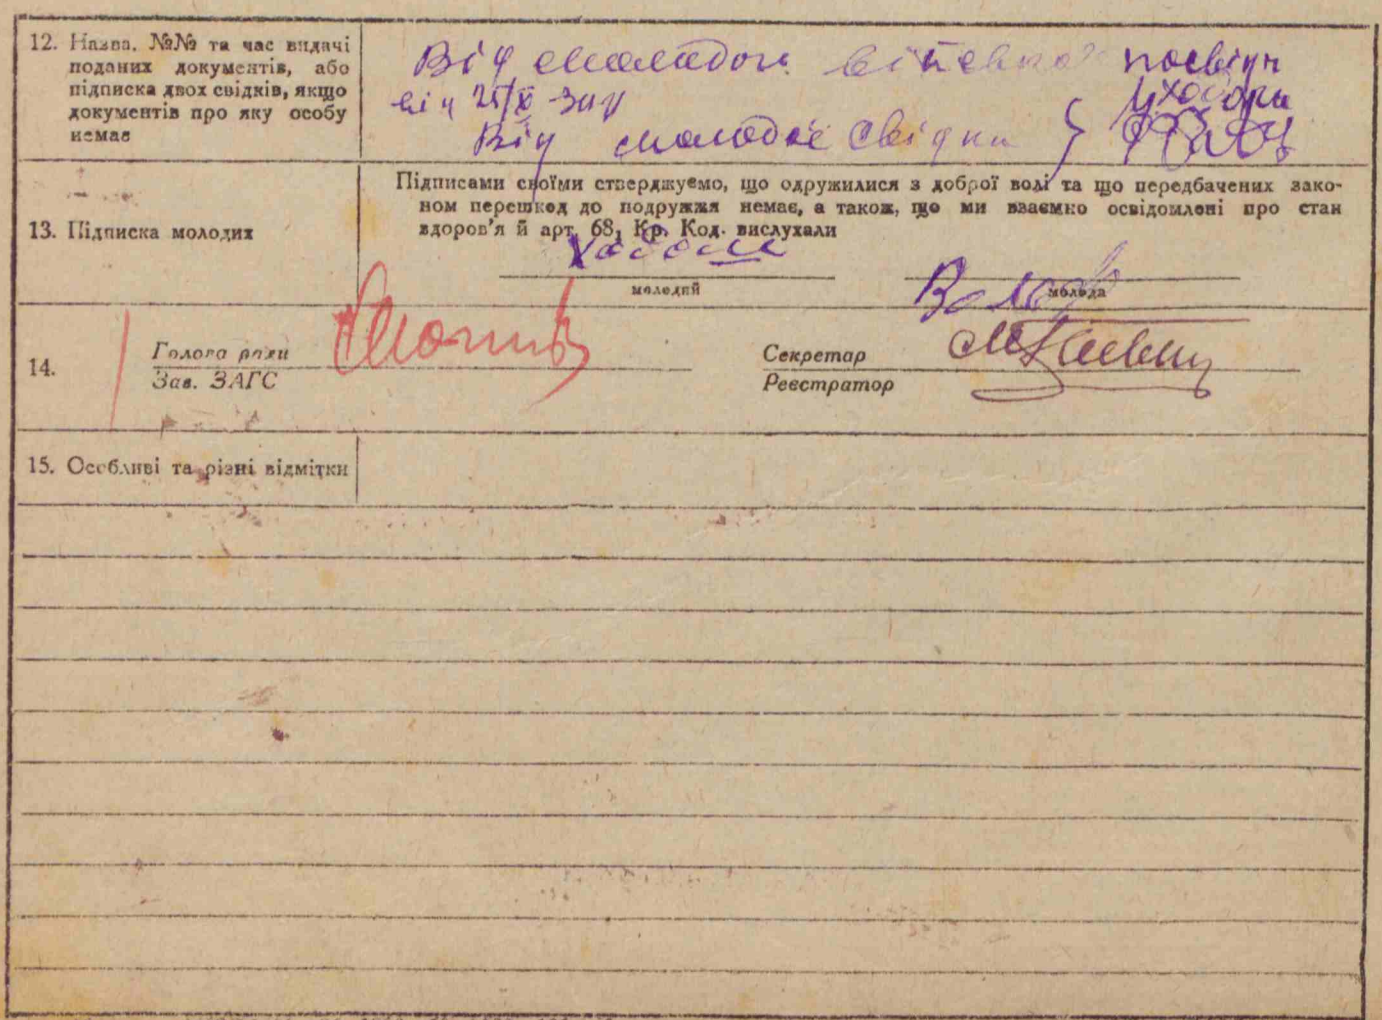 12. Назва, №№ та час видачі
поданих документів, або
підписка двох свідків, якщо
документів про яку особу
немає
Від молодого посвідч
від 25/X
Від молодої свідки }
13. Підписка молодих
Підписами своїми стверджуємо, що одружилися з доброї волі та що передбачених зако-
ном перешкод до подружжя немає, а також, що ми взаємно освідомлені про стан
здоров'я й арт. 68, Кр. Код. вислухали
молодий
молода
14.
Голова ради
Зав. ЗАГС
Секретар
Реєстратор
15. Особливі та різні відмітки